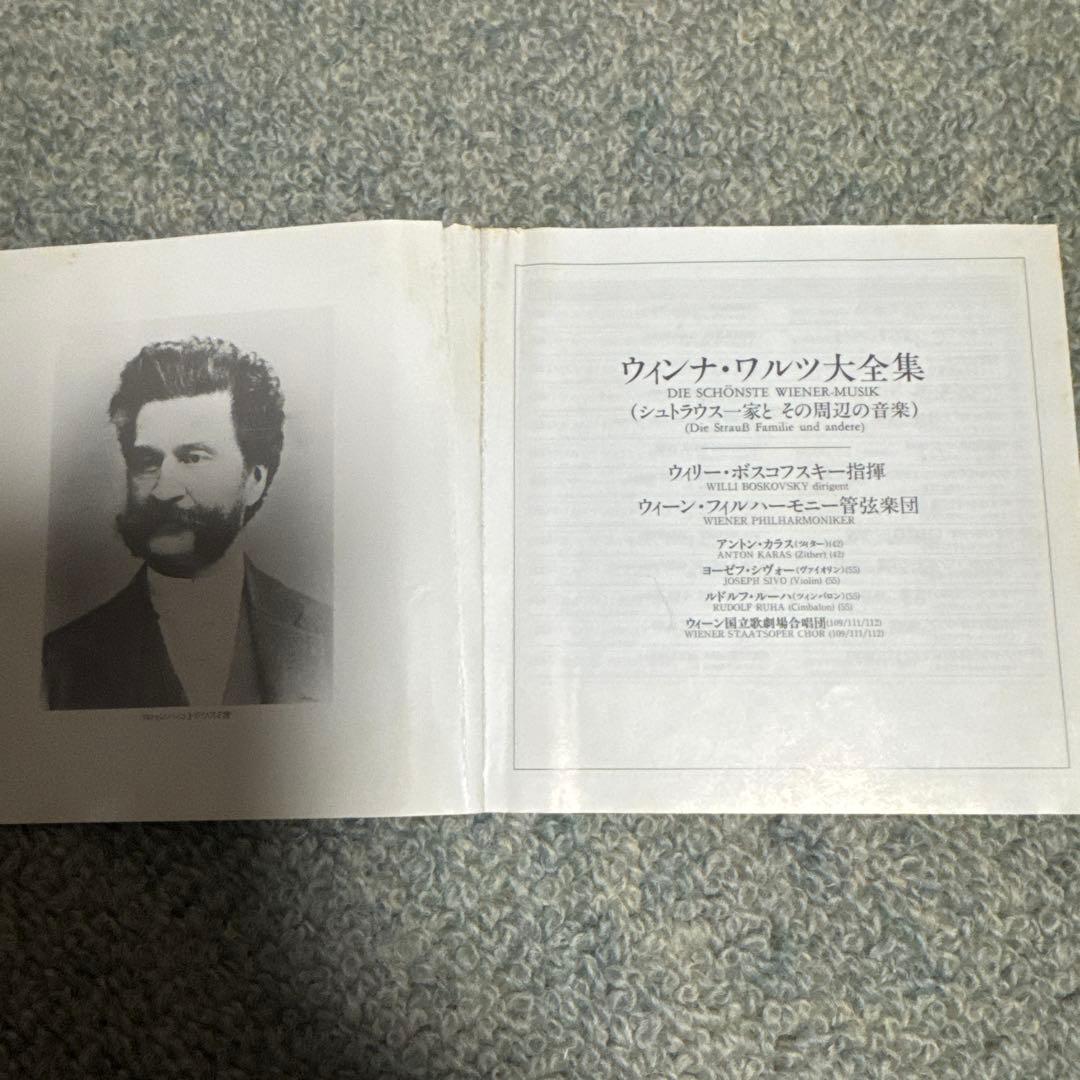 ウィンナ・ワルツ大全集
DIE SCHÖNSTE WIENER-MUSIK
(シュトラウス一家と その周辺の音楽)
(Die Strauß Familie und andere)
ウィリー・ボスコフスキー指揮
WILLI BOSKOVSKY dirigent
ウィーン・フィルハーモニー管弦楽団
WIENER PHILHARMONIKER
アントン・カラス(ツィター)(42)
ANTON KARAS (Zither) (42)
ヨーゼフ・シヴォー(ヴァイオリン)(55)
JOSEPH SIVO (Violin) (55)
ルドルフ・ルーハ(ツィンバロン)(55)
RUDOLF RUHA (Cimbalon) (55)
ウィーン国立歌劇場合唱団(109/111/112)
WIENER STAATSOPER CHOR (109/111/112)